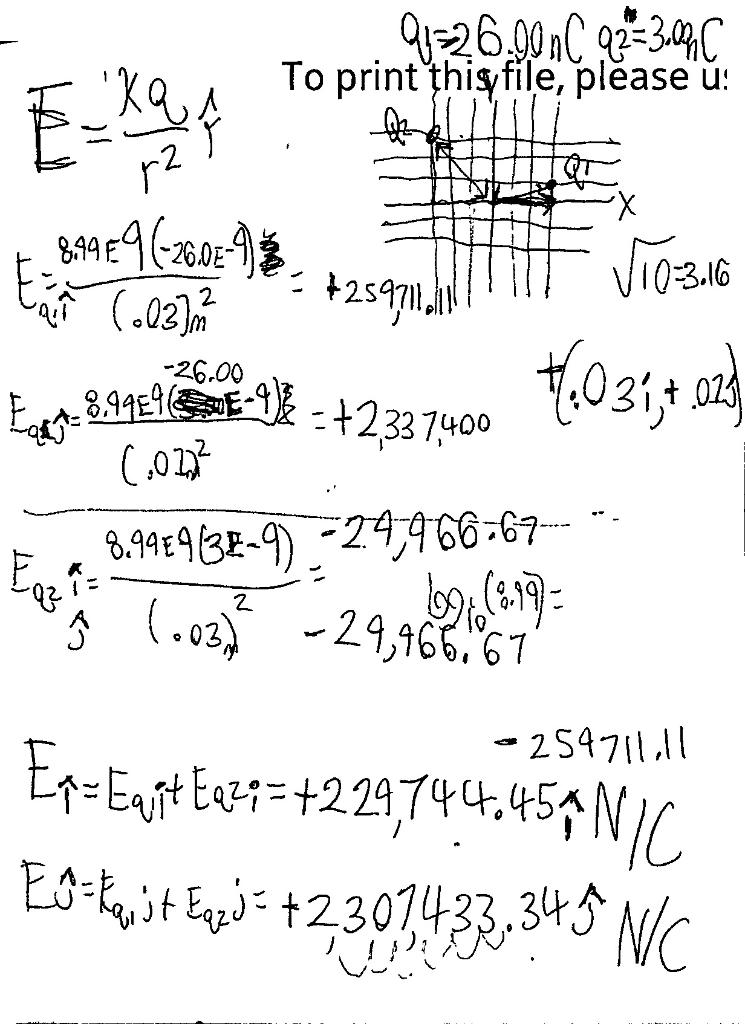 q1=-26.00nC q2=3.00nC
To print this file, please u
E = Kq/r² r̂
Q2
Q1
X
√10=3.16
Eq1î = 8.99E9(-26.0E-9)/(.03)m² = +259,711.11
+(.03i + .01j)
Eq1ĵ = 8.99E9(-26.00E-9)/(.01)m² = +2,337,400
Eq2 î ĵ = 8.99E9(3E-9)/(.03)m² = -29,966.67
log10(8.99)=
-29,966.67
-259711.11
Eî = Eq1i + Eq2i = +229,744.45î N/C
Eĵ = Eq1j + Eq2j = +2,307,433.34ĵ N/C